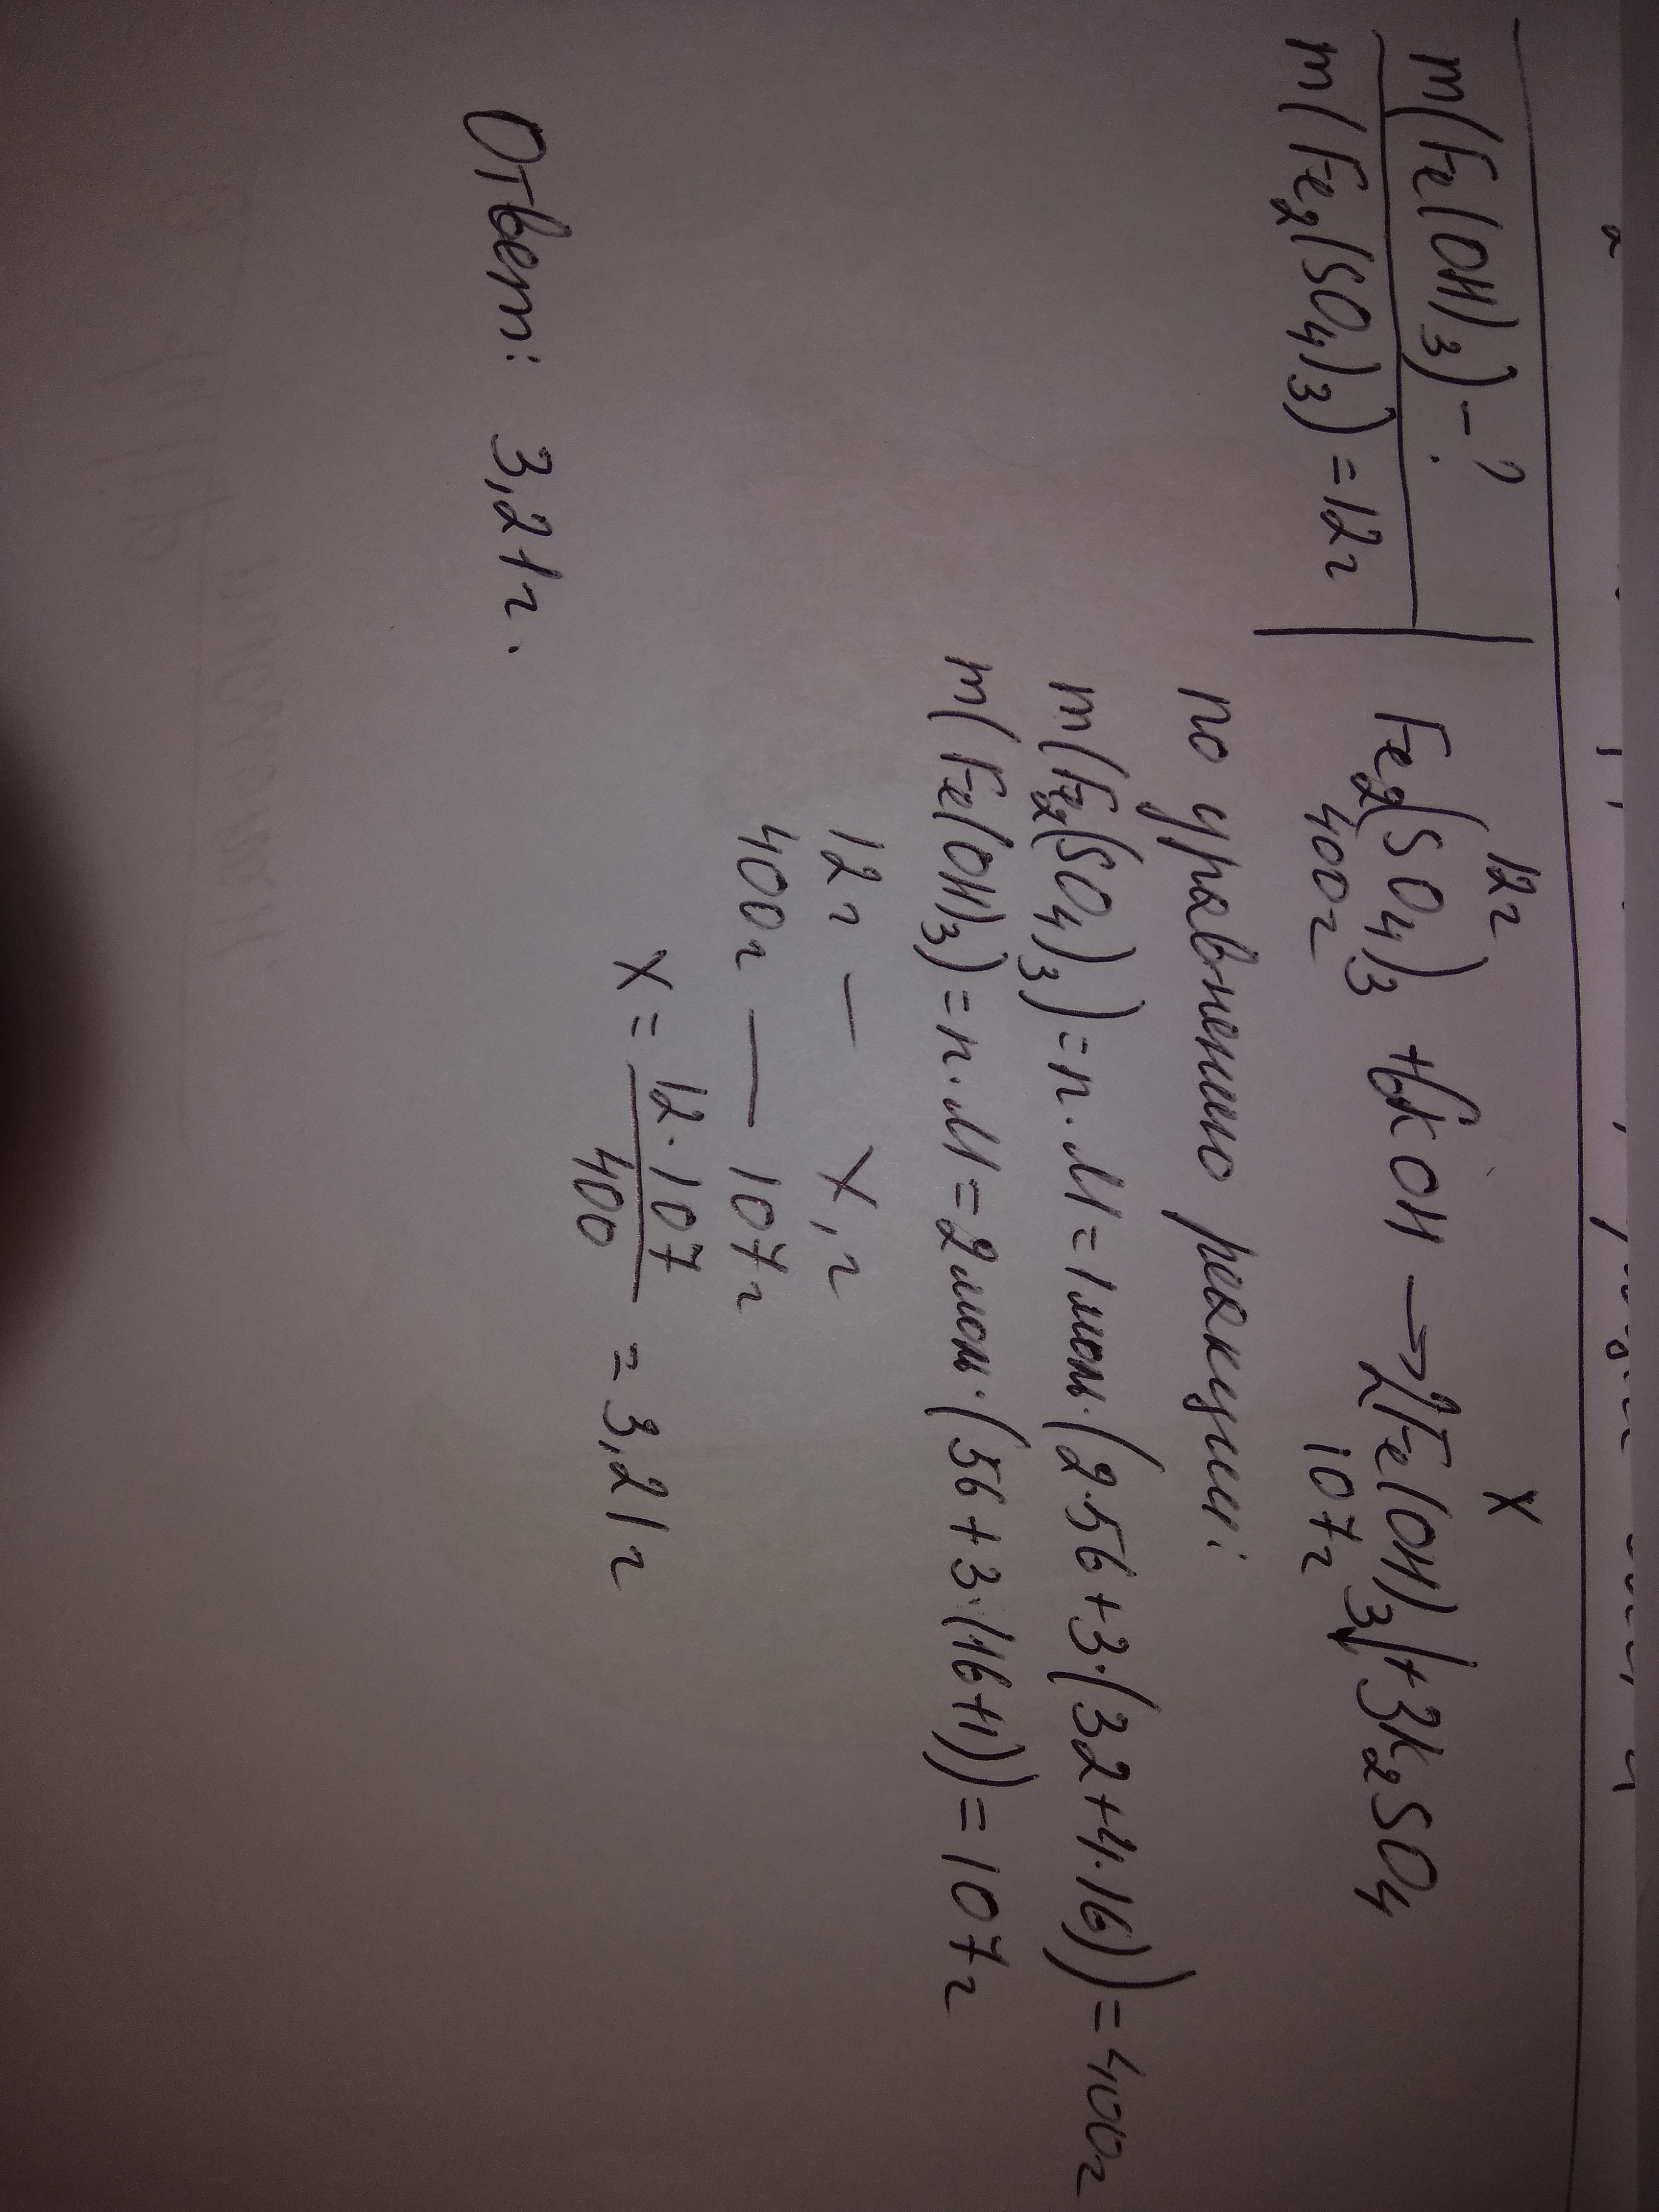 m(Fe(OH)3)-?
m(Fe2(SO4)3)=12г
12г X
Fe2(SO4)3 +6KOH → 2Fe(OH)3↓+3K2SO4
400г 107г
по уравнению реакции:
m(Fe2(SO4)3)=n·M=1моль·(2·56+3·(32+4·16))=400г
m(Fe(OH)3)=n·M=2моль·(56+3·(16+1))=107г
12г — X,г
400г — 107г
X= 12·107 / 400 = 3,21г
Ответ: 3,21г.